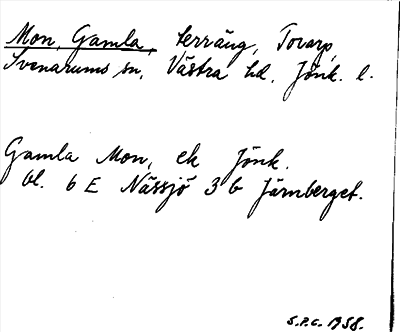 Mon, Gamla, terräng, Torarp,
Svenarums sn, Västra hd, Jönk. l.
Gamla Mon, ek Jönk.
bl. 6 E Nässjö 3 b Järnberget.
S.P.C. 1958.